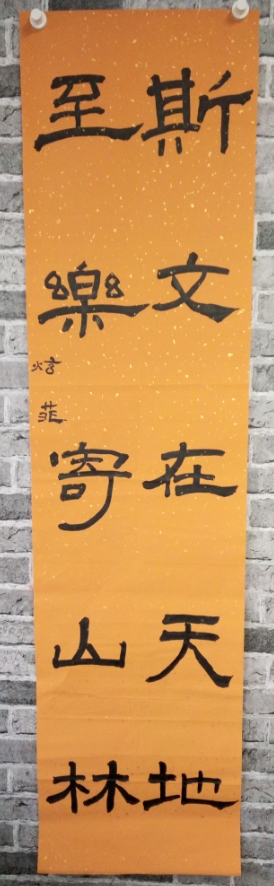 斯文在天地
至樂寄山林
炫菲